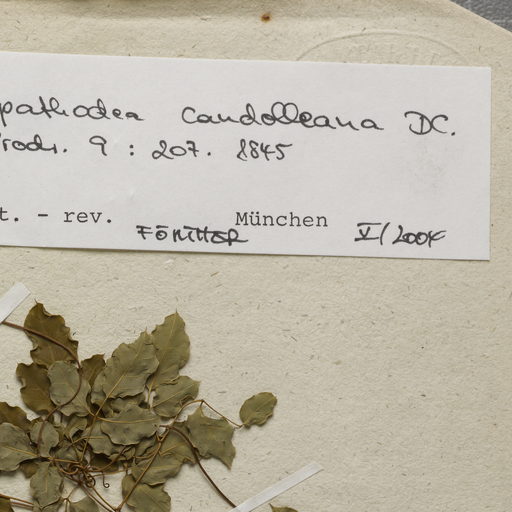 pathodea Candolleana DC.
rodr. 9 : 207. 1845
t. - rev. München
FÖRTHER V/2004